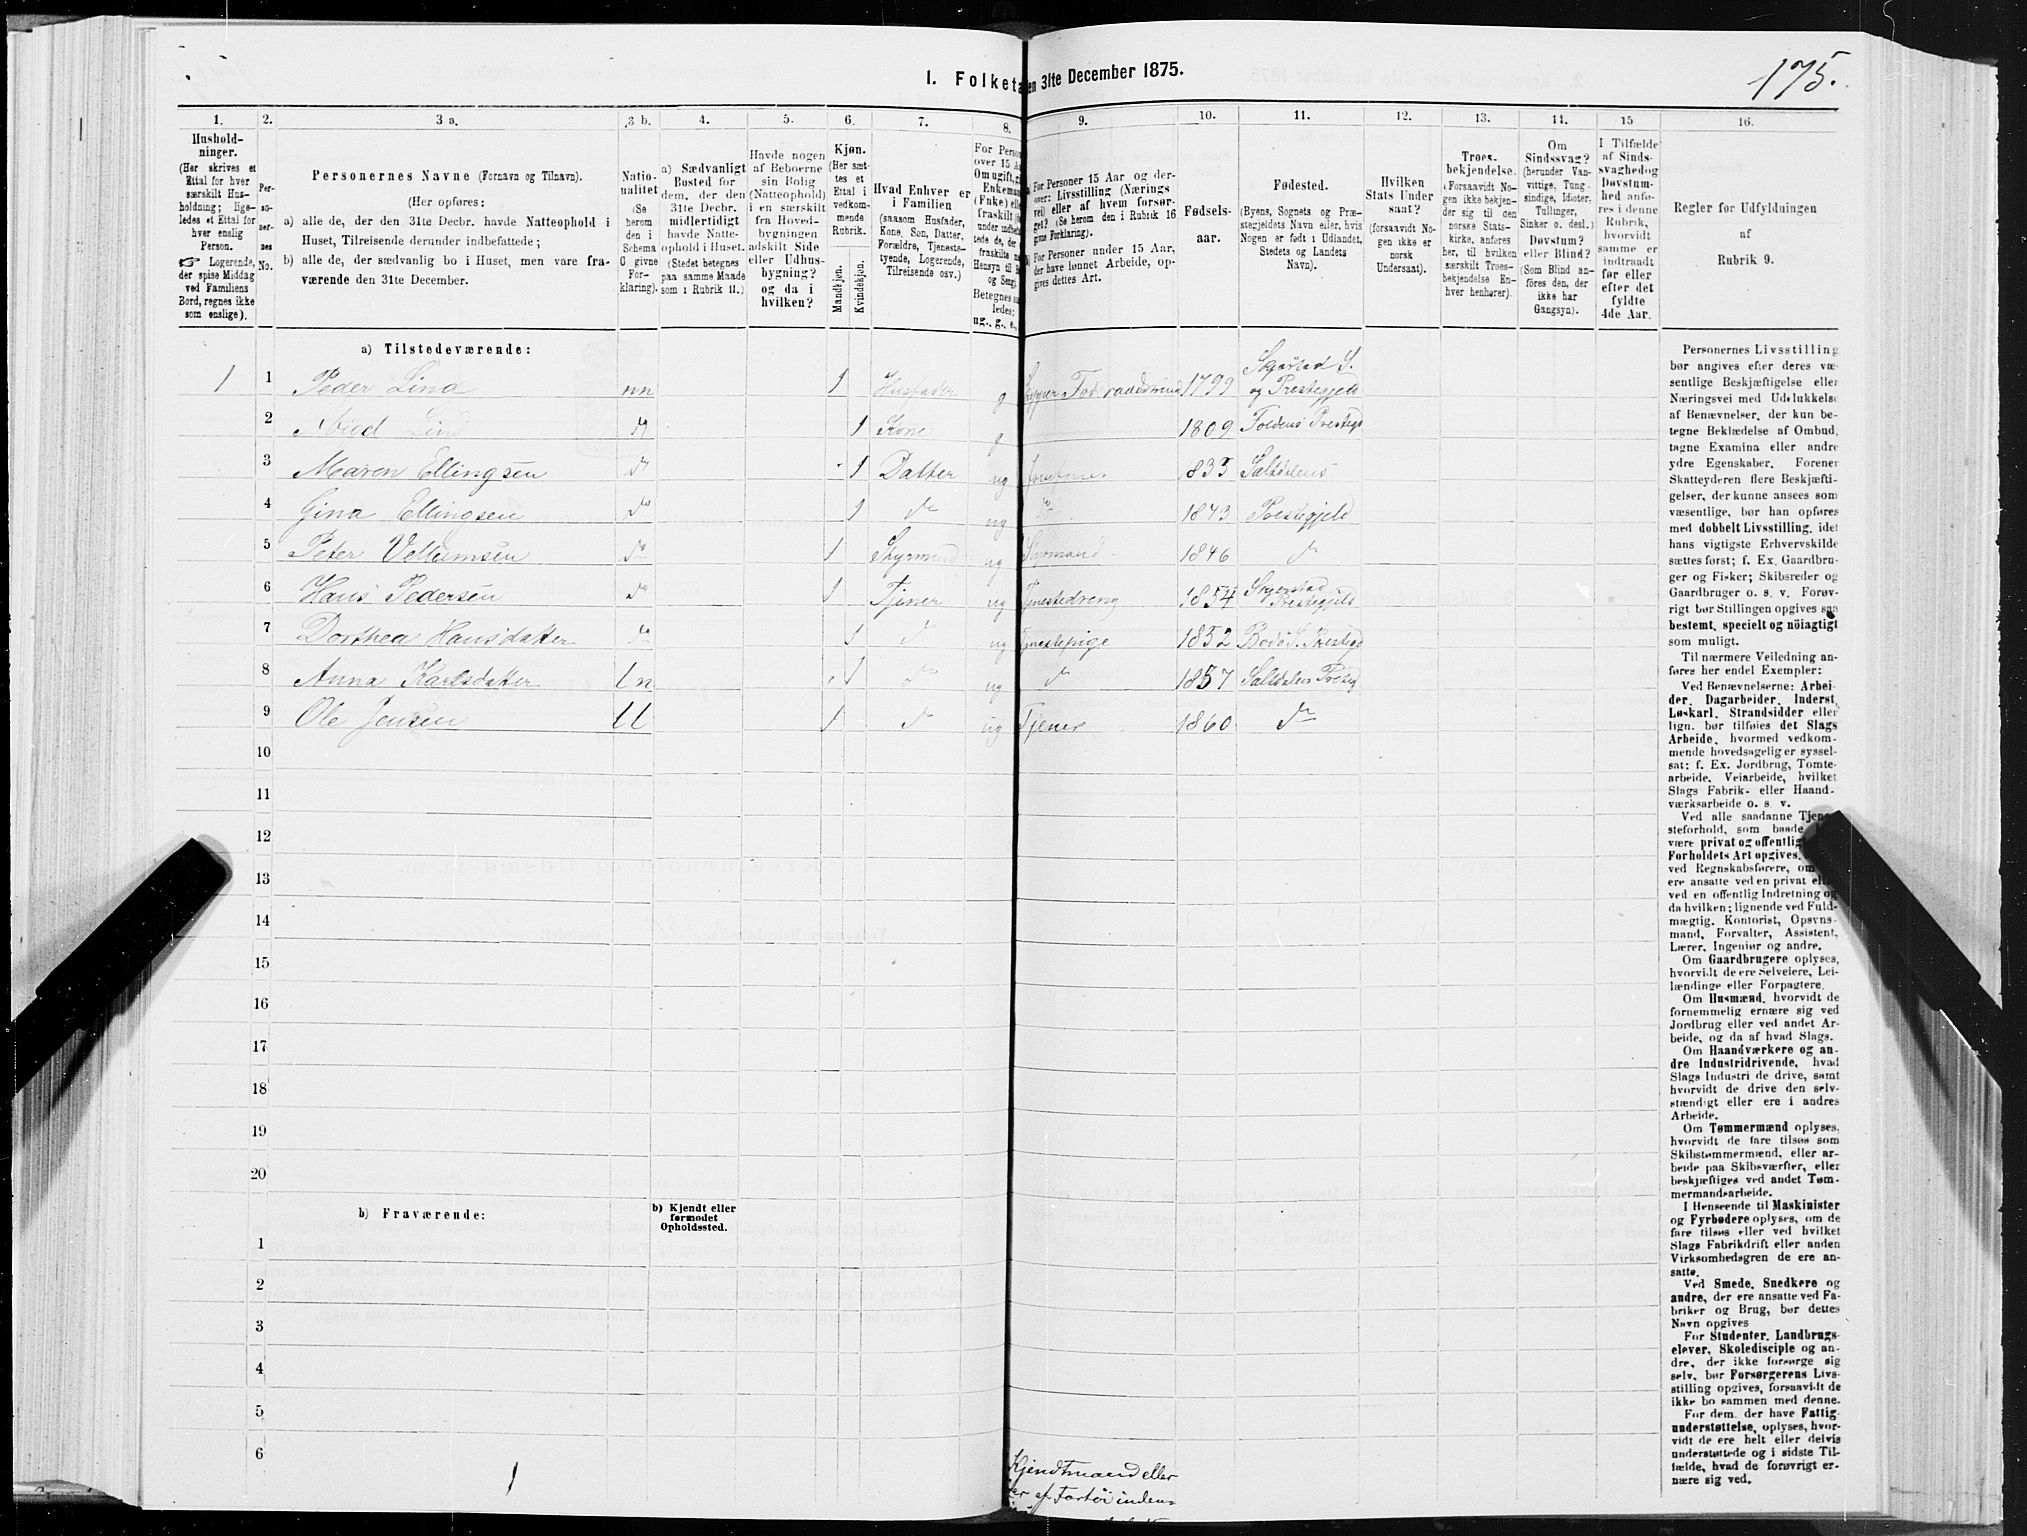 175.
I. Folketa en 31te December 1875.
1. 2. 3 a. 3 b. 4. 5. 6. 7. 8. 9. 10. 11. 12. 13. 14. 15 16.
Hushold-
ninger.
(Her skrives et
Ettal for hver
særskilt Hus-
holdning; lige-
ledes et Ettal for
hver enslig
Person.
☞ Logerende,
der spise Middag
ved Familiens
Bord, regnes ikke
som enslige).
Per-
so-
ner-
nes
No.
Personernes Navne (Fornavn og Tilnavn).
(Her opføres:
a) alle de, der den 31te Decbr. havde Natteophold i
Huset, Tilreisende derunder indbefattede;
b) alle de, der sædvanlig bo i Huset, men vare fra-
værende den 31te December.
Natio-
nalitet
(Se
herom
den i
Schema
C givne
For-
klaring).
a) Sædvanligt
Bosted for
dem, der den
31te Decbr.
midlertidigt
havde Natte-
ophold i Huset.
(Stedet betegnes
paa samme Maade
som i Rubrik 11.)
Havde nogen
af Beboerne
sin Bolig
(Natteophold)
i en særskilt
fra Hoved-
bygningen
adskilt Side
eller Udhus-
bygning?
og da i
hvilken?
Kjøn.
(Her sæt-
tes et
Ettal i
vedkom-
mende
Rubrik.
Mandkjøn.
Kvindekjøn.
Hvad Enhver er
i Familien
(saasom Husfader,
Kone, Søn, Datter,
Forældre, Tjeneste-
tyende, Logerende,
Tilreisende osv.)
For Person
over 15 A
Om ugift, g
Enkeman
(Enke) elle
fraskilt
under indbe
tede de, der
fraskilte
Hensyn til
og Seng)
Betegnes
ledes:
ug., g., e.,
For Personer 15 Aar og der-
over: Livsstilling (Nærings
vei) eller af hvem forsør-
get? (Se herom den i Rubrik 16
givne Forklaring).
For Personer under 15 Aar,
der have lønnet Arbeide, op-
gives dettes Art.
Fødsels-
aar.
Fødested.
(Byens, Sognets og Præ-
stegjeldets Navn eller, hvis
Nogen er født i Udlandet,
Stedets og Landets
Navn).
Hvilken
Stats Under
saat?
(forsaavidt No-
gen ikke er
norsk
Undersaat).
Troes-
bekjendelse.
(Forsaavidt No-
gen ikke bekjen-
der sig til den
norske Stats-
kirke, anføres
her, til hvilken
særskilt Troes-
bekjendelse En-
hver henhører).
Om
Sindssvag?
(herunder Van-
vittige, Tung-
sindige, Idioter,
Tullinger,
Sinker o. desl.)
Døvstum?
eller Blind?
(Som Blind an-
føres den, der
ikke har
Gangsyn).
I Tilfælde
af Sinds-
svaghed og
Døvstum-
hed anfø-
res i denne
Rubrik,
hvorvidt
samme er
indtraadt
før eller
efter det
fyldte
4de Aar.
Regler for Udfyldningen
af
Rubrik 9.
a) Tilstedeværende:
1 1 Peder Lind nn 1 Husfader g 1799 Skjerstad S. og Prestegjeld
2 Lind do 1 Kone g 1809 Foldens Prestegd
3 Maren Ellingsen do 1 Datter ug 1835 Saltdalens
4 Gina Ellingsen do 1 do ug do 1843 Prestegjeld
5 Peter do 1 Styrmand ug Styrmand 1846 do
6 Hans Pedersen do 1 Tjener ug Tjenestedreng 1854 Skjerstad Prestegjeld
7 Dorthea Hansdatter do 1 do ug Tjenestepige 1852 Bodø S. Prestegd
8 Anna Karlsdatter ln 1 do ug do 1857 Saltdalens Presteg
9 Ole Jensen ll 1 do ug Tjener 1860 do
10
11
12
13
14
15
16
17
18
19
20
b) Fraværende:
b) Kjendt eller
formodet
Opholdssted.
1
2
3
4
5
6
1
Kjendtmand eller
er af Fartøi inden-
Personernes Livsstilling
bør angives efter deres væ-
sentlige Beskjæftigelse eller
Næringsvei med Udelukkelse
af Benævnelser, der kun be-
tegne Beklædelse af Ombud,
tagne Examina eller andre
ydre Egenskaber. Forener
Skatteyderen flere Beskjæfti-
gelser, der kunne ansees som
væsentlige, bør han opføres
med dobbelt Livsstilling, idet
hans vigtigste Erhvervskilde
sættes først; f. Ex. Gaardbru-
ger og Fisker; Skibsreder og
Gaardbruger o. s. v. Forøv-
rigt bør Stillingen opgives saa
bestemt, specielt og nöiagtigt
som muligt.
Til nærmere Veiledning an-
føres her endel Exempler:
Ved Benævnelserne: Arbei-
der, Dagarbeider, Inderst,
Løskarl, Strandsidder eller
lign. bør tilføies det Slags
Arbeide, hvormed vedkom-
mende hovedsagelig er syssel-
sat; f. Ex. Jordbrug, Tomte-
arbeide, Veiarbeide, hvilket
Slags Fabrik- eller Haand-
værksarbeide o. s. v.
Ved alle saadanne Tjene-
steforhold, som baade
være privat og offentlig
Forholdets Art opgives,
ved Regnskabsførere, om
ere ansatte ved en privat elle
ved en offentlig Indretning og
da hvilken; lignende ved Fuld-
mægtig, Kontorist, Opsyns-
mand, Forvalter, Assistent,
Lærer, Ingeniør og andre.
Om Gaardbrugere oplyses,
hvorvidt de ere Selveiere, Lei-
lændinge eller Forpagtere.
Om Husmænd, hvorvidt de
fornemmelig ernære sig ved
Jordbrug eller ved andet Ar-
beide, og da af hvad Slags.
Om Haandværkere og an-
dre Industridrivende, hvad
Slags Industri de drive, samt
hvorvidt de drive den selv-
stændigt eller ere i andres
Arbeide.
Om Tømmermænd oplyses,
hvorvidt de fare tilsøs som
Skibstømmermænd, eller ar-
beide paa Skibsværfter, eller
beskjæftiges ved andet Tøm-
mermandsarbeide.
I Henseende til Maskinister
og Fyrbødere oplyses, om de
fare tilsøs eller ved hvilket
Slags Fabrikdrift eller anden
Virksomhedsgren de ere an-
satte.
Ved Smede, Snedkere og
andre, der ere ansatte ved Fa-
briker og Brug, bør dettes
Navn opgives
For Studenter, Landbrugs-
elever, Skoledisciple og an-
dre, der ikke forsørge sig
selv, bør Forsørgerens Livs-
stilling opgives, forsaavidt de
ikke bo sammen med denne.
For dem, der have Fattig-
understøttelse, oplyses, hvor-
vidt de ere helt eller delvis
understøttede og i sidste Til-
fælde, hvad de forøvrigt er-
nære sig ved.